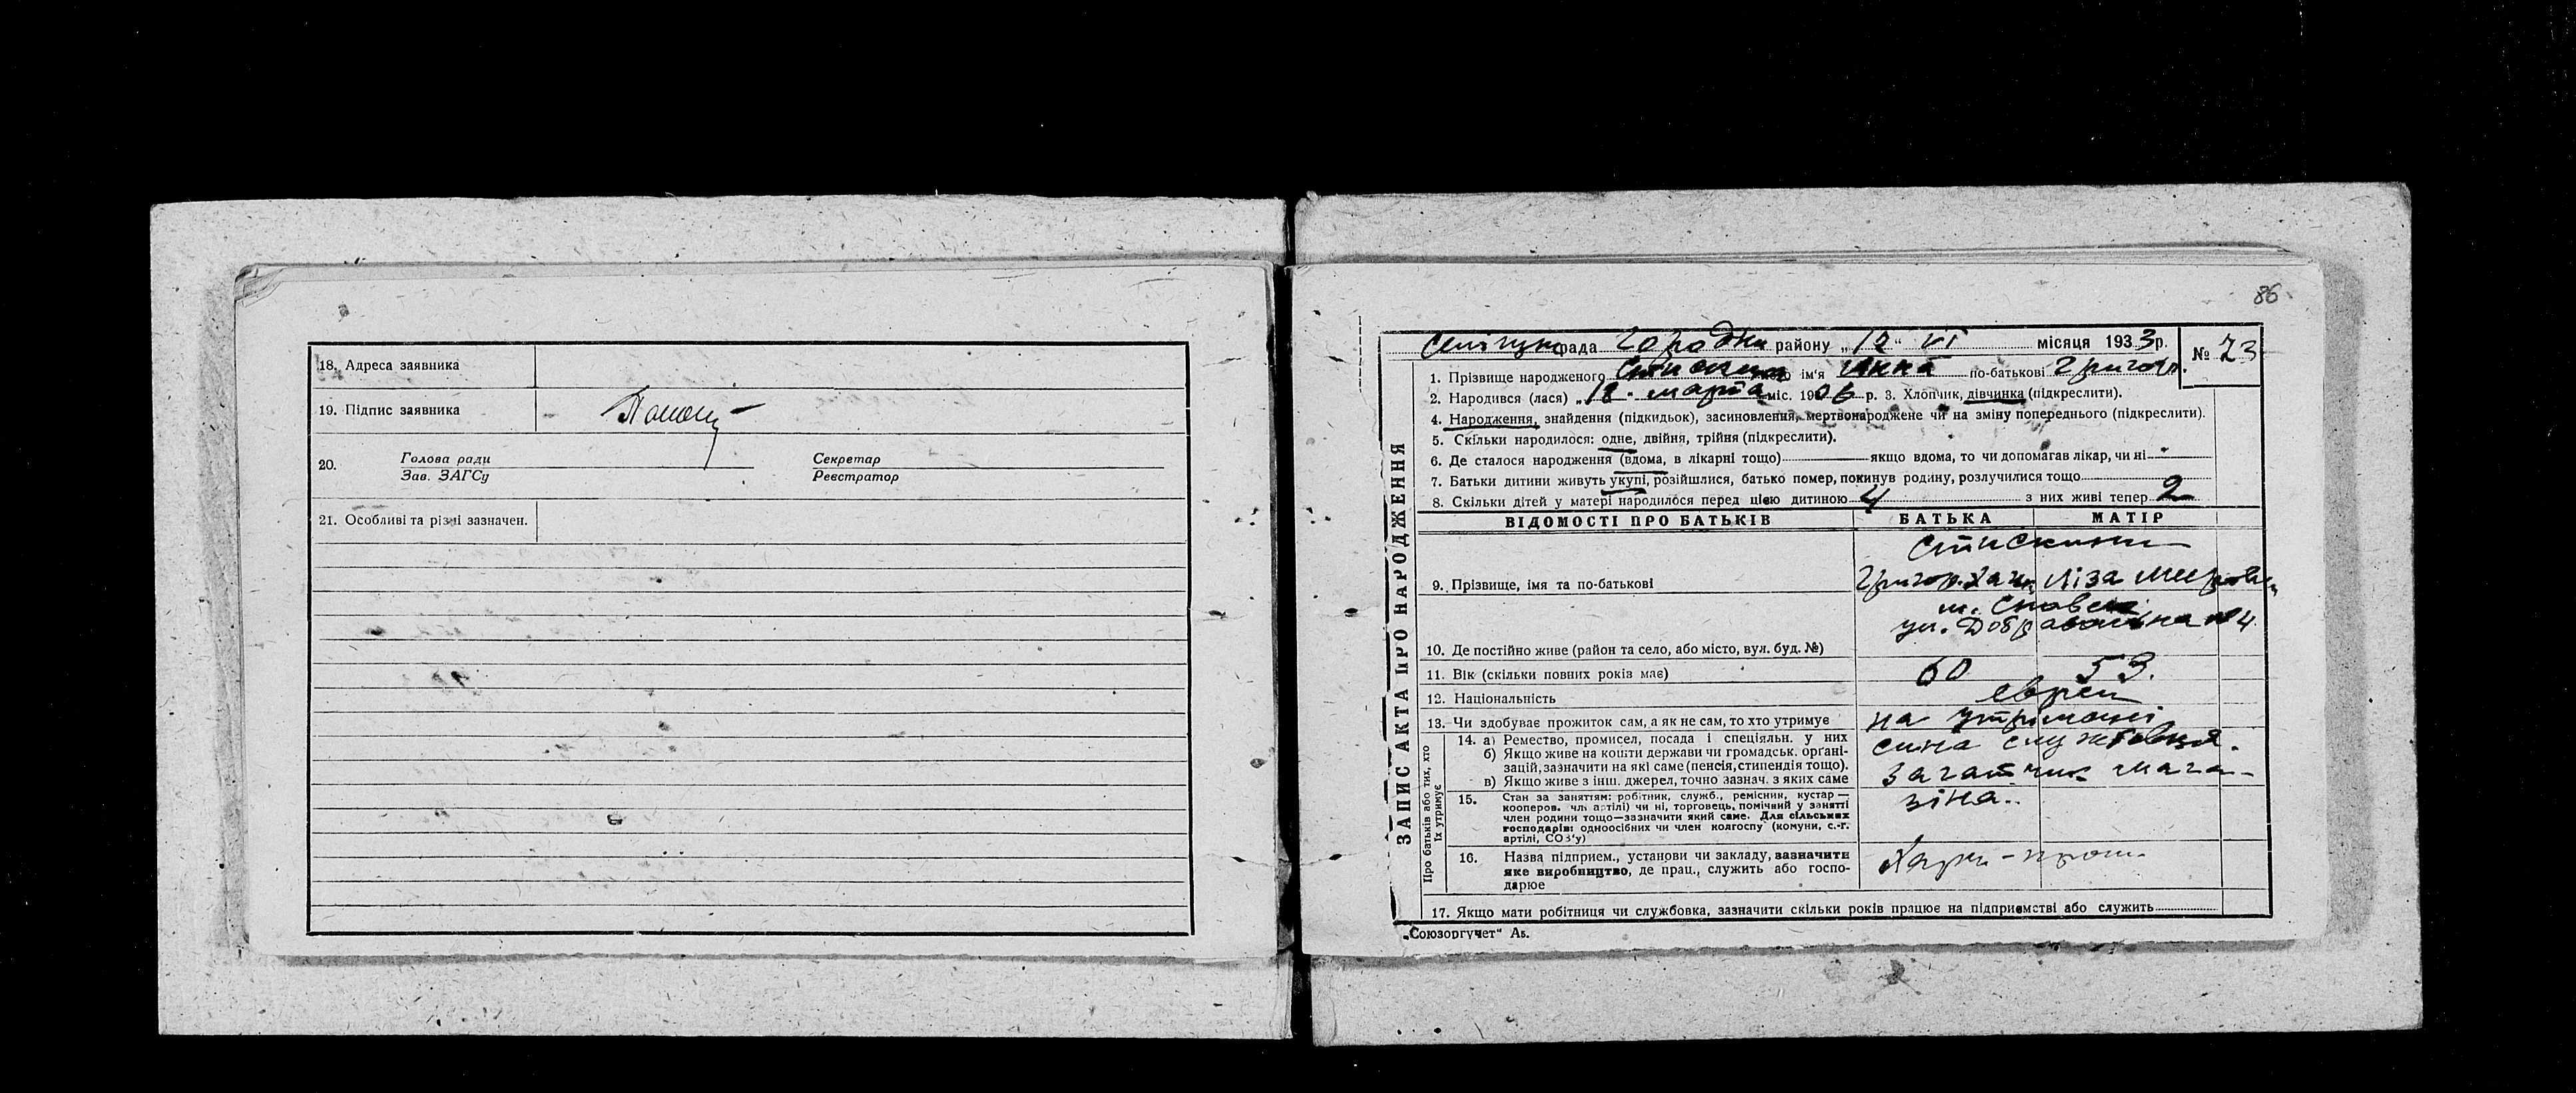 18. Адреса заявника
19. Підпис заявника
20. Голова ради Секретар
Зав. ЗАГСу Реєстратор
21. Особливі та різні зазначен.
86
рада району „12“ VI місяця 1933р. № 23
1. Прізвище народженого ім'я по-батькові Григор.
2. Народився (лася) „18. марта міс. 1906 р. 3. Хлопчик, дівчинка (підкреслити).
4. Народження, знайдення (підкидьок), засиновлення, мертвонароджене чи на зміну попереднього (підкреслити).
5. Скільки народилося: одне, двійня, трійня (підкреслити).
6. Де сталося народження (вдома, в лікарні тощо) якщо вдома, то чи допомагав лікар, чи ні
7. Батьки дитини живуть укупі, розійшлися, батько помер, покинув родину, розлучилися тощо
8. Скільки дітей у матері народилося перед цією дитиною 4 з них живі тепер 2
ЗАПИС АКТА ПРО НАРОДЖЕННЯ
ВІДОМОСТІ ПРО БАТЬКІВ БАТЬКА МАТІР
9. Прізвище, імя та по-батькові
Григор. Ліза
ул. №4
10. Де постійно живе (район та село, або місто, вул. буд. №)
11. Вік (скільки повних років має) 60 53.
12. Національність евреи
13. Чи здобуває прожиток сам, а як не сам, то хто утримує на утримані
Про батьків або тих, хто їх утримує
14. а) Ремество, промисел, посада і спеціяльн. у них сина службовця.
б) Якщо живе на кошти держави чи громадськ. органі-
зацій, зазначити на які саме (пенсія, стипендія тощо).
в) Якщо живе з інш. джерел, точно зазнач. з яких саме мага-
15. Стан за заняттям: робітник, служб., ремісник, кустар — зіна.
кооперов. чл. артілі) чи ні, торговець, помічний у занятті
член родини тощо—зазначити який саме. Для сільських
господарів: одноосібних чи член колгоспу (комуни, с.-г.
артілі, СОЗ'у)
16. Назва підприєм., установи чи закладу, зазначити
яке виробництво, де прац., служить або госпо-
дарює
17. Якщо мати робітниця чи службовка, зазначити скільки років працює на підприємстві або служить
„Союзоргучет“ Аб.